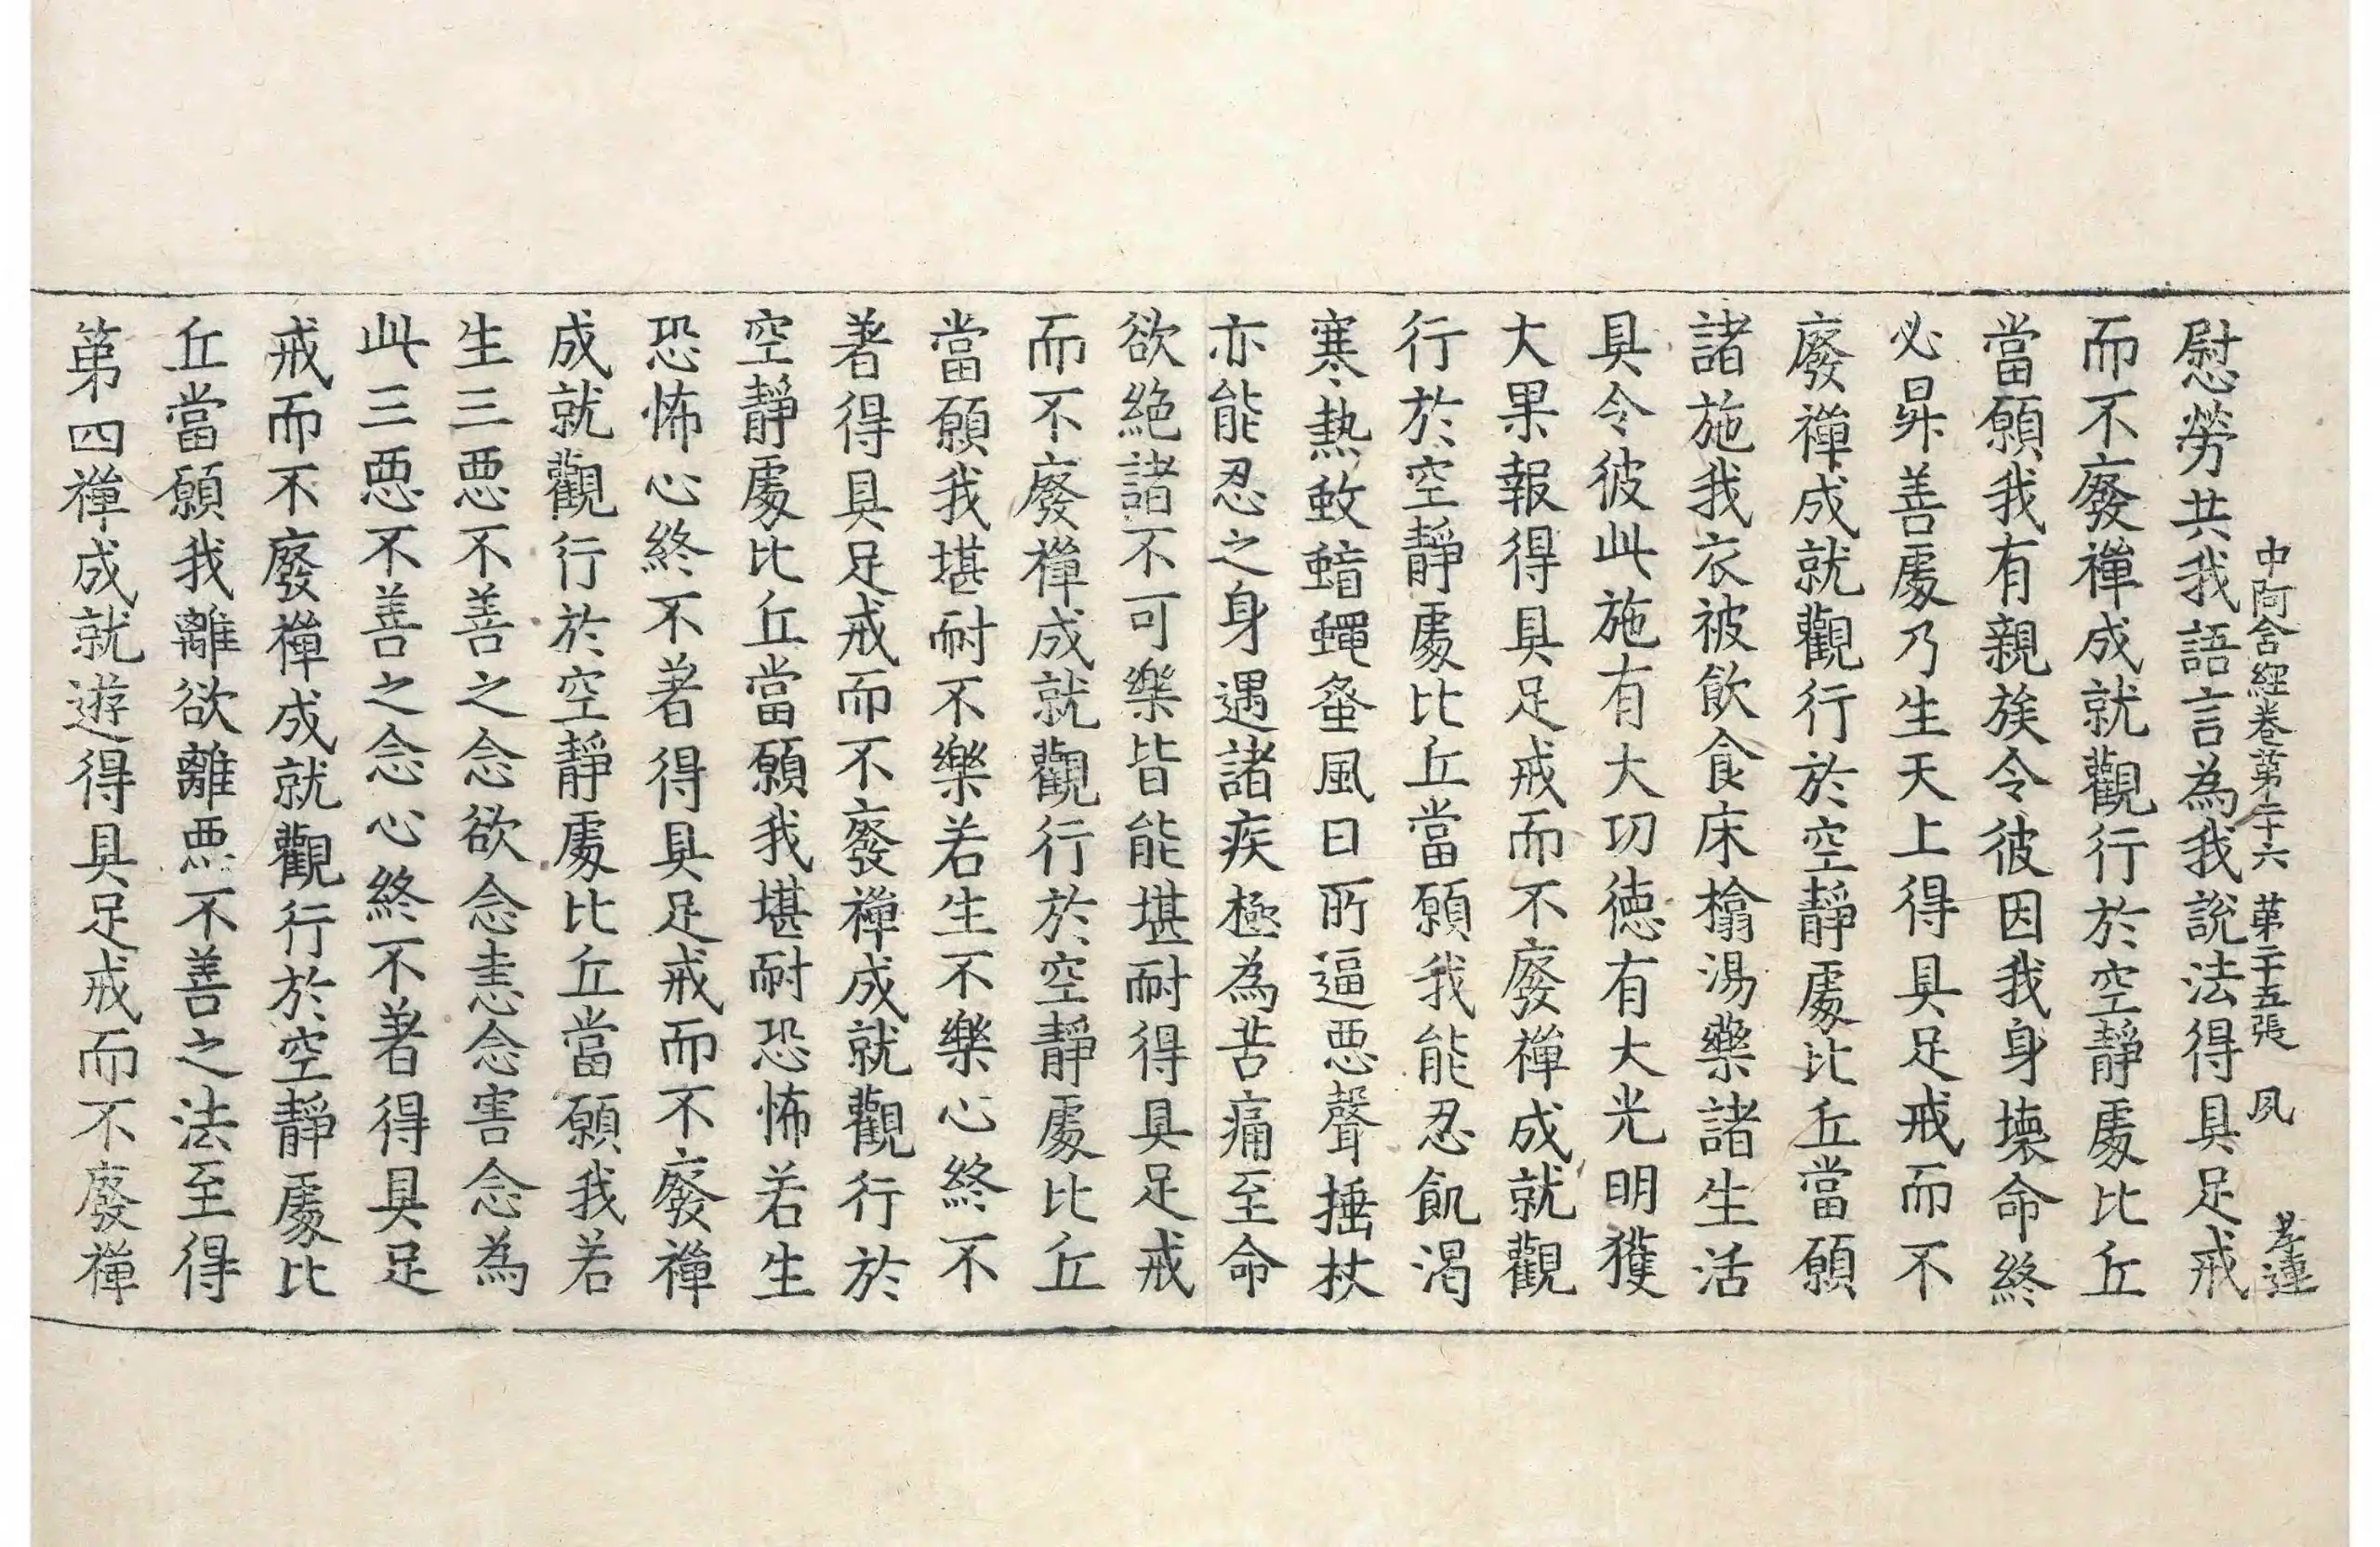 中阿含經卷第三十六 第二十五張 夙
慰勞共我語言為我說法得具足戒
而不廢禪成就觀行於空靜處比丘
當願我有親族令彼因我身壞命終
必昇善處乃生天上得具足戒而不
廢禪成就觀行於空靜處比丘當願
諸施我衣被飲食床榻湯藥諸生活
具令彼此施有大功德有大光明獲
大果報得具足戒而不廢禪成就觀
行於空靜處比丘當願我能忍飢渴
寒熱蚊蝱蠅蚤風日所逼惡聲捶杖
亦能忍之身遇諸疾極為苦痛至命
欲絕諸不可樂皆能堪耐得具足戒
而不廢禪成就觀行於空靜處比丘
當願我堪耐不樂若生不樂心終不
著得具足戒而不廢禪成就觀行於
空靜處比丘當願我堪耐恐怖若生
恐怖心終不著得具足戒而不廢禪
成就觀行於空靜處比丘當願我若
生三惡不善之念欲念恚念害念為
此三惡不善之念心終不著得具足
戒而不廢禪成就觀行於空靜處比
丘當願我離欲離惡不善之法至得
第四禪成就遊得具足戒而不廢禪